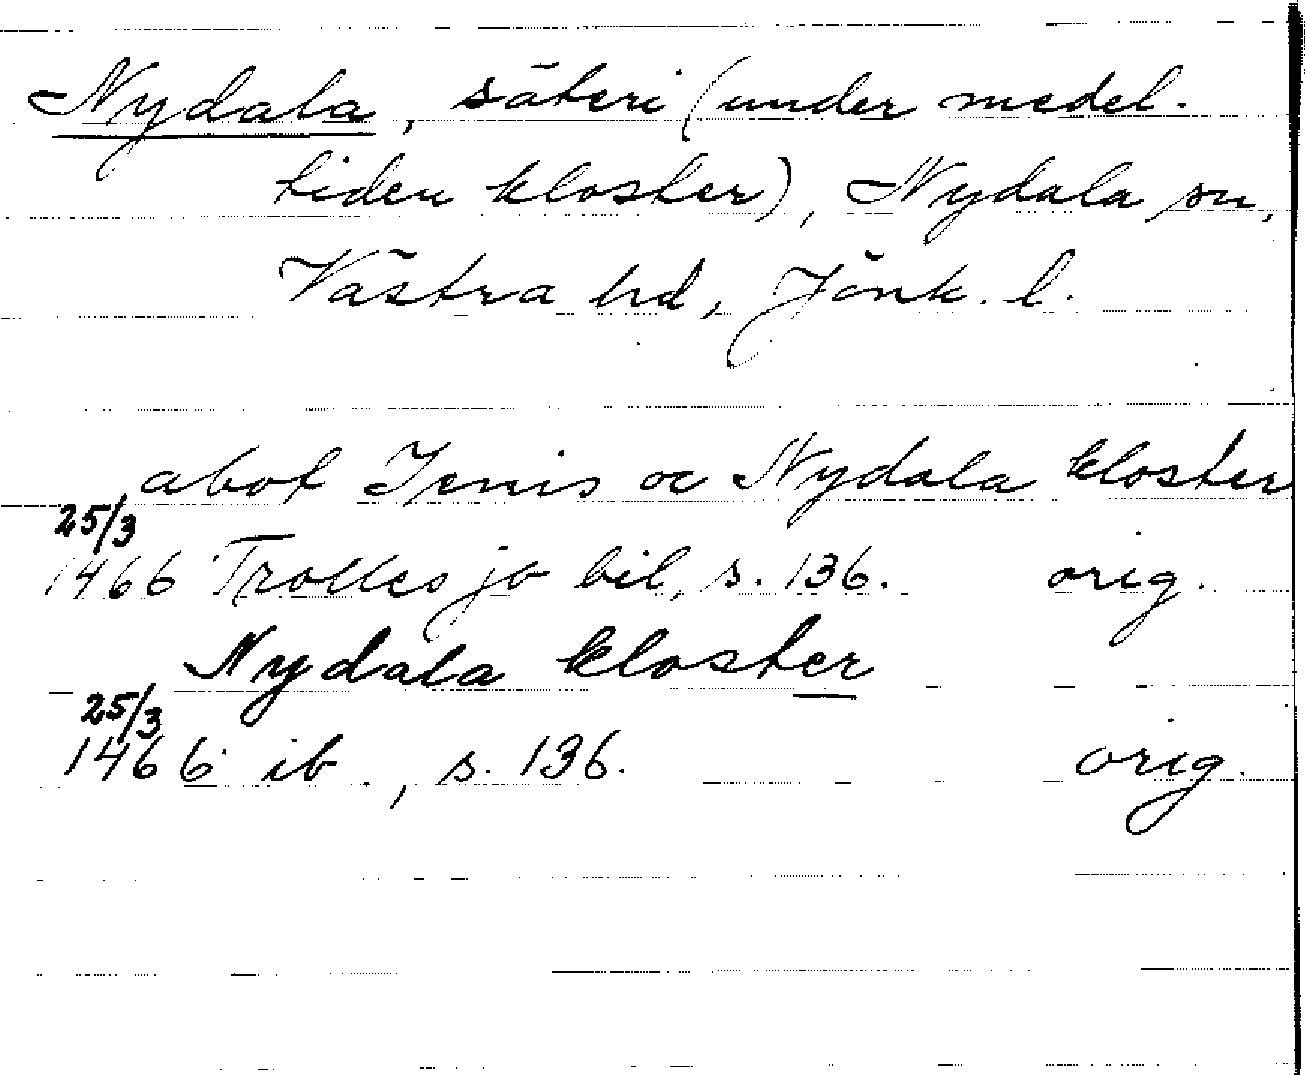 Nydala, säteri (under medel-
tiden kloster), Nydala sn,
Västra hd, Jönk. l.
abot Jenis oc Nydala kloster
25/3
1466 Trolles jb bil, s. 136. orig.
Nydala kloster
25/3
1466 ib., s. 136. orig.